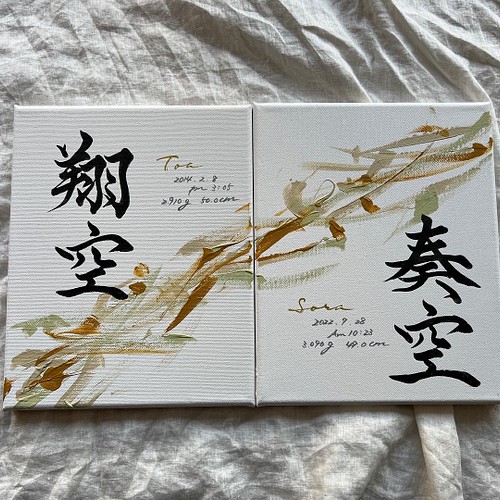 翔空
Toa
2014.2.8
pm 3:05
2910g 50.0cm
奏空
Sora
2022.9.28
Am 10:23
3090g 49.0cm